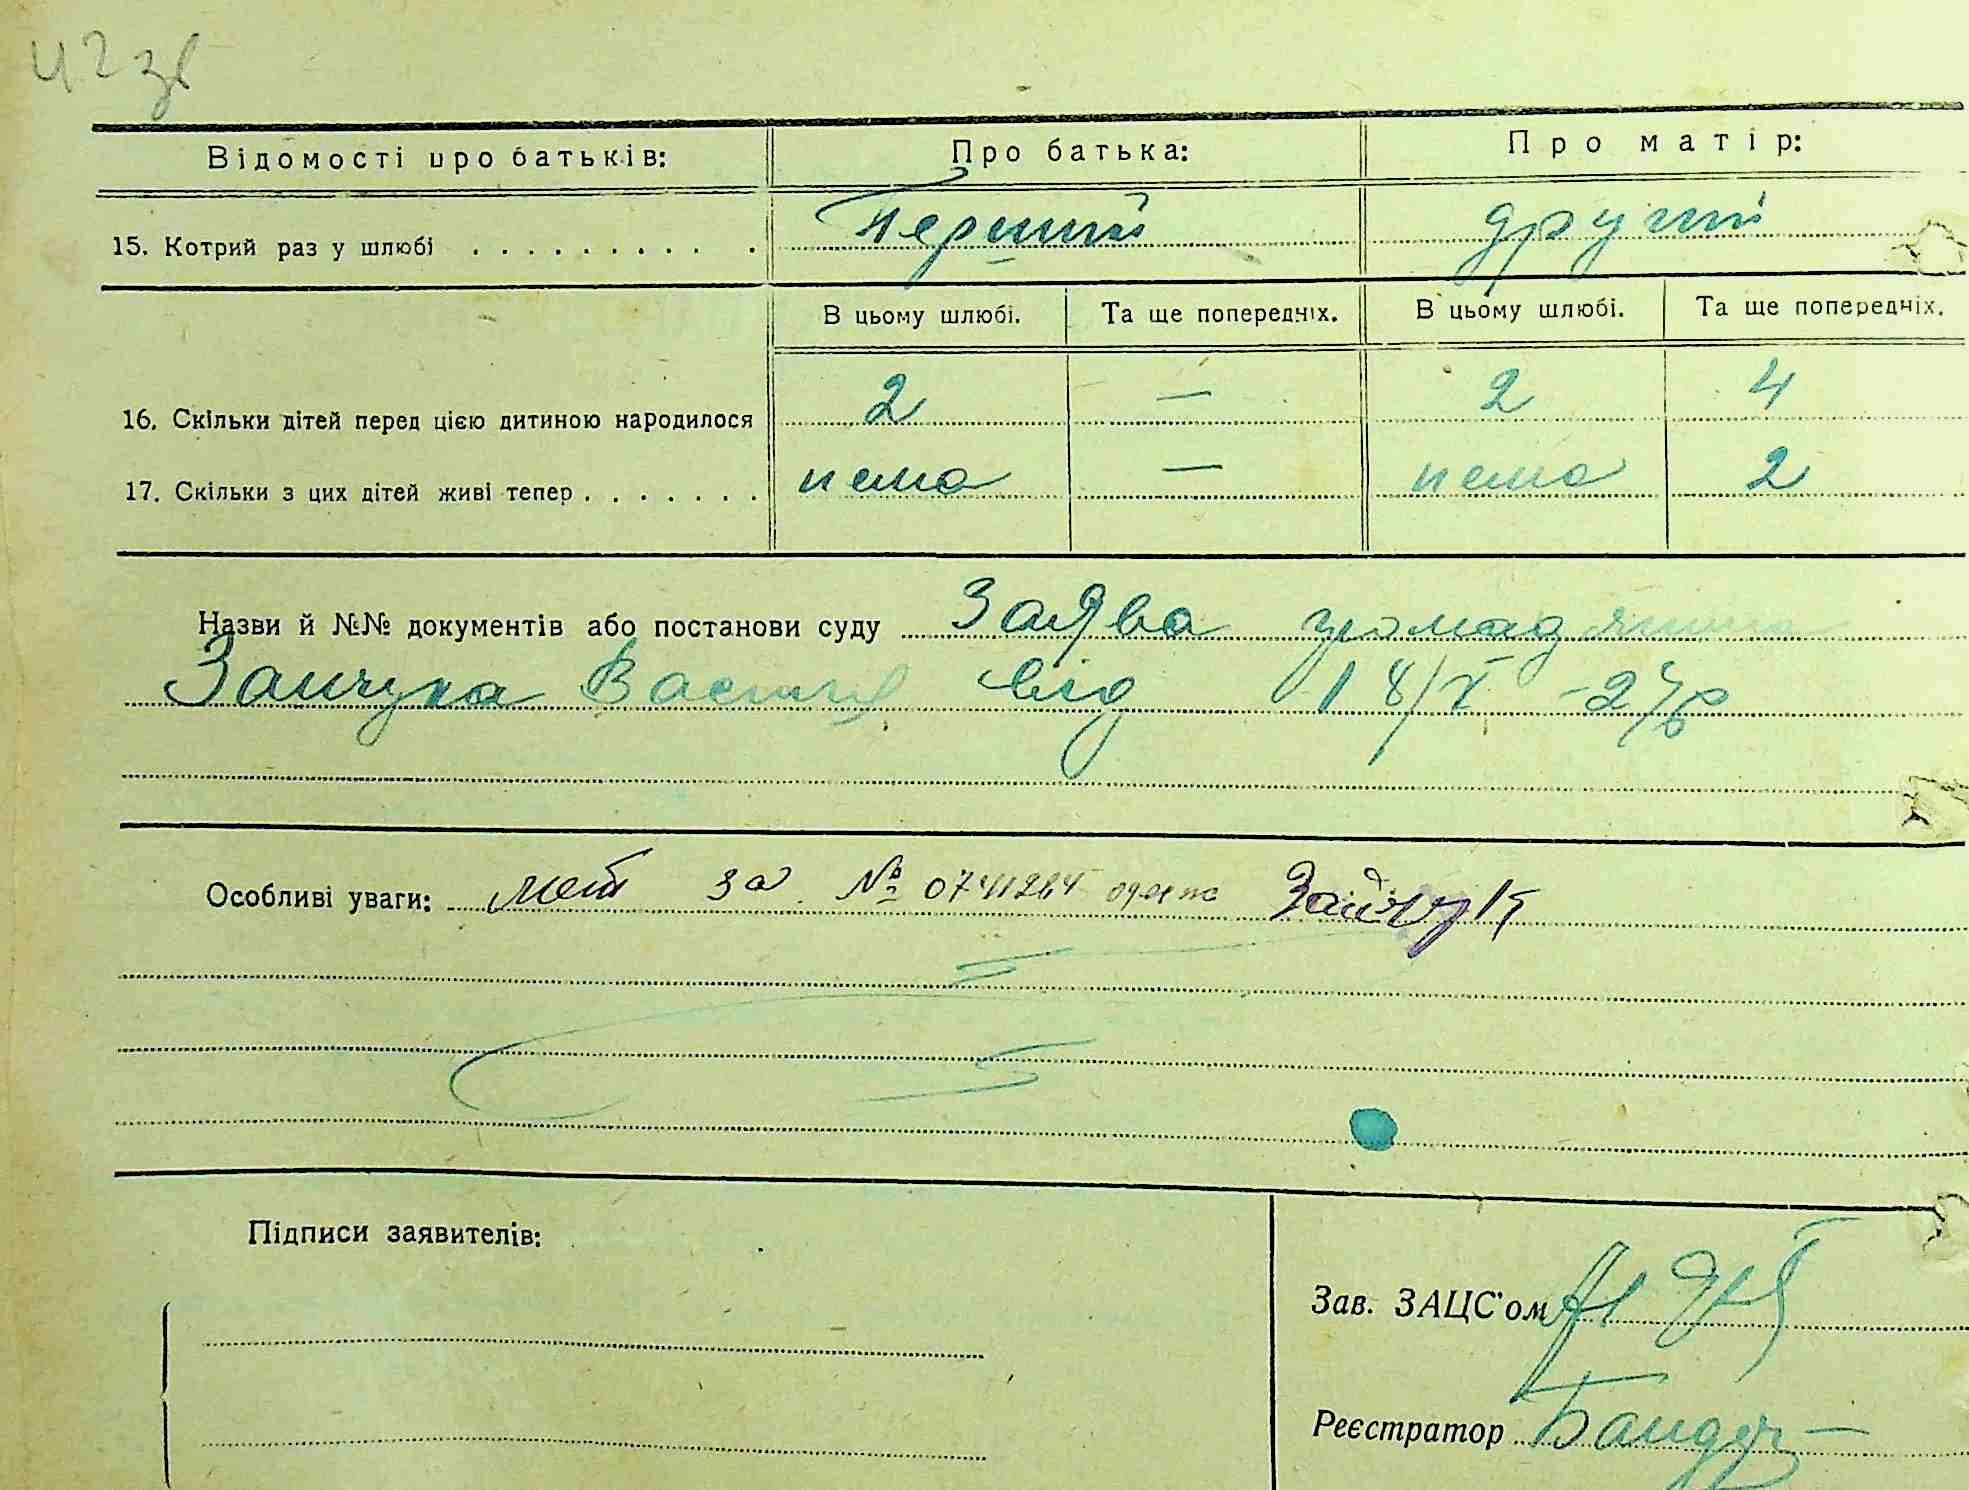 42 зв
Відомості про батьків: Про батька: Про матір:
15. Котрий раз у шлюбі . . . . . . . . . . Перший другий
В цьому шлюбі. Та ще попередніх. В цьому шлюбі. Та ще попередніх.
16. Скільки дітей перед цією дитиною народилося 2 — 2 4
17. Скільки з цих дітей живі тепер . . . . . . . нема — нема 2
Назви й №№ документів або постанови суду Заява громадянина
Заичука Василя від 18/X -27р
Особливі уваги: мет за № 0741264 одержа Зайчук
Підписи заявителів:
Зав. ЗАЦС'ом
Реєстратор